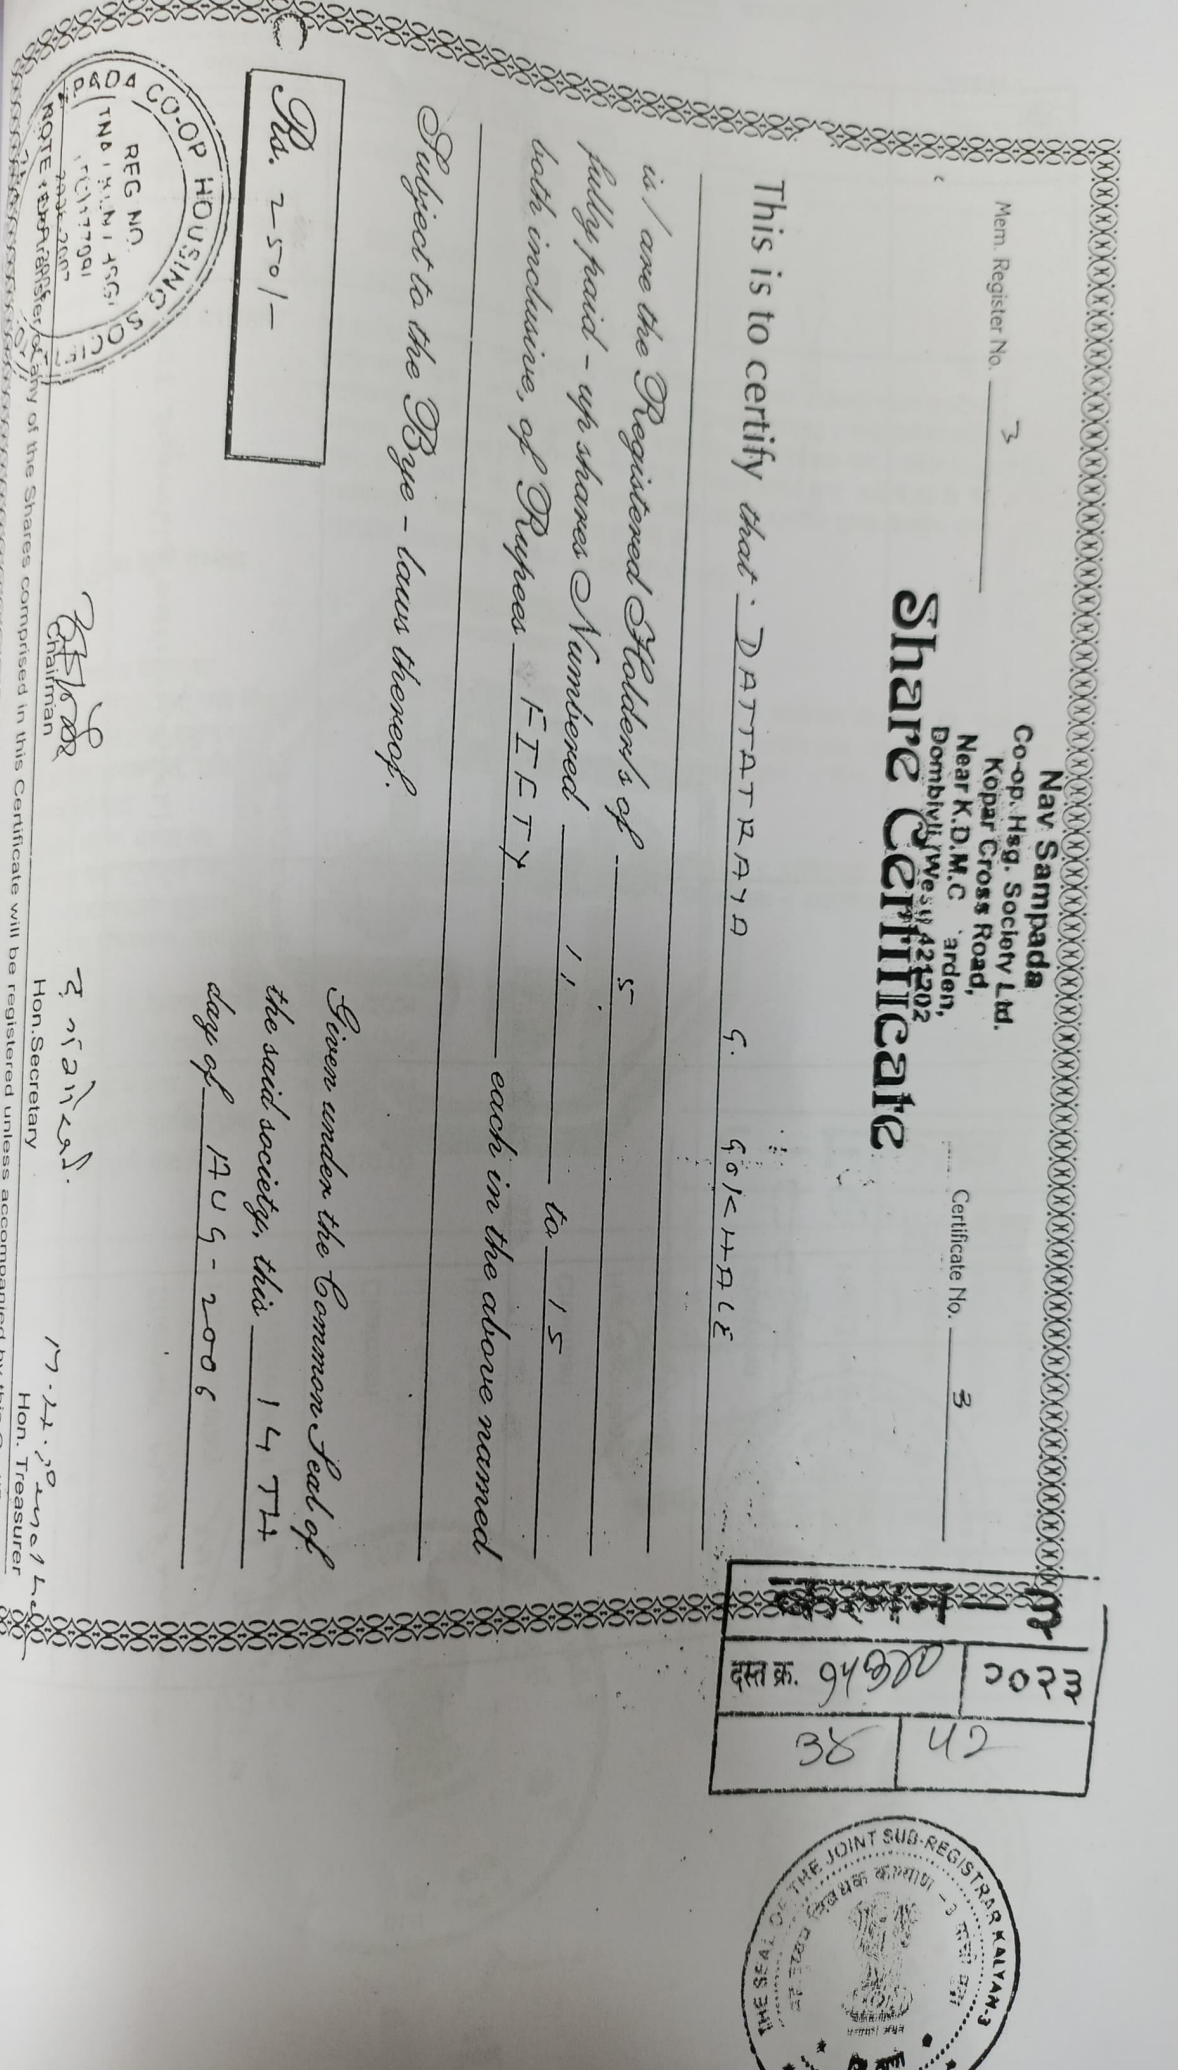 Nav Sampada
Co-op. Hsg. Society Ltd.
Kopar Cross Road,
Near K.D.M.C arden,
Dombivli (West) 421202
Mem. Register No. 3
Certificate No. 3
Share Certificate
This is to certify that DATTATRAYA G. GOKHALE
is / are the Registered Holder/s of 5
fully paid - up shares Numbered 11 to 15
both inclusive, of Rupees FIFTY each in the above named
Subject to the Bye - laws thereof.
Rs. 250/-
Given under the Common Seal of
the said society, this 14TH
day of AUG - 2006
PADA CO-OP HOUSING SOCIET
REG NO.
Chairman
Hon.Secretary
Hon. Treasurer
NOTE any of the Shares comprised in this Certificate will be registered unless accompanied by this
२०२३
दस्त क्र.
३४ ४२
THE SEAL OF THE JOINT SUB-REGISTRAR KALYAN-3